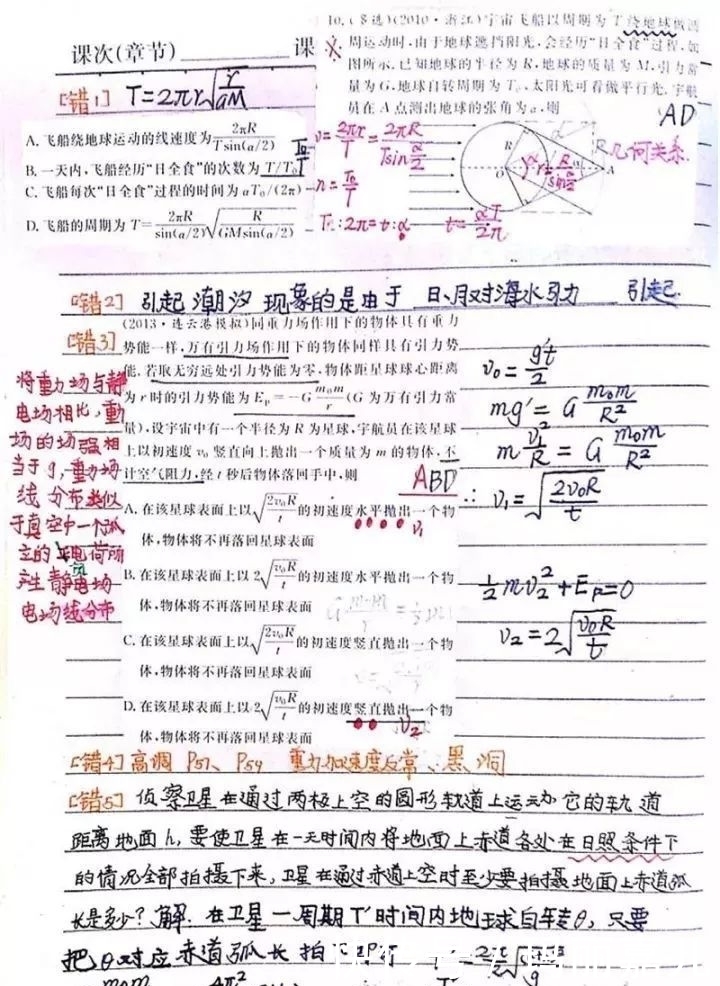 10.(多选)(2010·浙江)宇宙飞船以周期为T绕地球做圆
周运动时,由于地球遮挡阳光,会经历"日全食"过程,如
图所示.已知地球的半径为R,地球的质量为M,引力常
量为G,地球自转周期为T₀,太阳光可看做平行光,宇航
员在A点测出地球的张角为α,则
AD
课次(章节)
课
[错1] T=2πr√(r/GM)
A.飞船绕地球运动的线速度为2πR/(Tsin(α/2))
B.一天内,飞船经历"日全食"的次数为T/T₀
C.飞船每次"日全食"过程的时间为αT₀/(2π)
D.飞船的周期为T=2πR/sin(α/2)√(R/(GMsin(α/2)))
T₀/T
v=2πr/T=2πR/(Tsin α/2)
n=T₀/T
T:2π=t:α t=αT/2π
R
O
α
A
r=R/(sin α/2)
几何关系
[错2] 引起潮汐现象的是由于 日、月对海水引力 引起
[错3]
(2013·连云港模拟)同重力场作用下的物体具有重力
势能一样,万有引力场作用下的物体同样具有引力势
能.若取无穷远处引力势能为零,物体距星球球心距离
为r时的引力势能为Eₚ=-G m₀m/r(G为万有引力常
量),设宇宙中有一个半径为R为星球,宇航员在该星球
上以初速度v₀竖直向上抛出一个质量为m的物体,不
计空气阻力,经t秒后物体落回手中,则
ABD
A.在该星球表面上以√(2v₀R/t)的初速度水平抛出一个物
体,物体将不再落回星球表面
v₁
B.在该星球表面上以2√(v₀R/t)的初速度水平抛出一个物
体,物体将不再落回星球表面
C.在该星球表面上以√(2v₀R/t)的初速度竖直抛出一个物
体,物体将不再落回星球表面
D.在该星球表面上以2√(v₀R/t)的初速度竖直抛出一个物
体,物体将不再落回星球表面
v₂
将重力场与静
电场相比,重力
场的场强相
当于g,重力场
线分布类似
于真空中一个孤
立的正电荷所
产生静电场
电场线分布
v₀=g't/2
mg'=G m₀m/R²
m v₁²/R=G m₀m/R²
∴ v₁=√(2v₀R/t)
½mv₂²+Eₚ=0
v₂=2√(v₀R/t)
[错4] 高调 P57、P59 重力加速度反常、黑洞
[错5] 侦察卫星在通过两极上空的圆形轨道上运动它的轨道
距离地面h,要使卫星在一天时间内将地面上赤道各处在日照条件下
的情况全部拍摄下来,卫星在通过赤道上空时至少要拍摄地面上赤道弧
长是多少?解:在卫星一周期T'时间内地球自转θ,只要
把θ对应赤道弧长拍